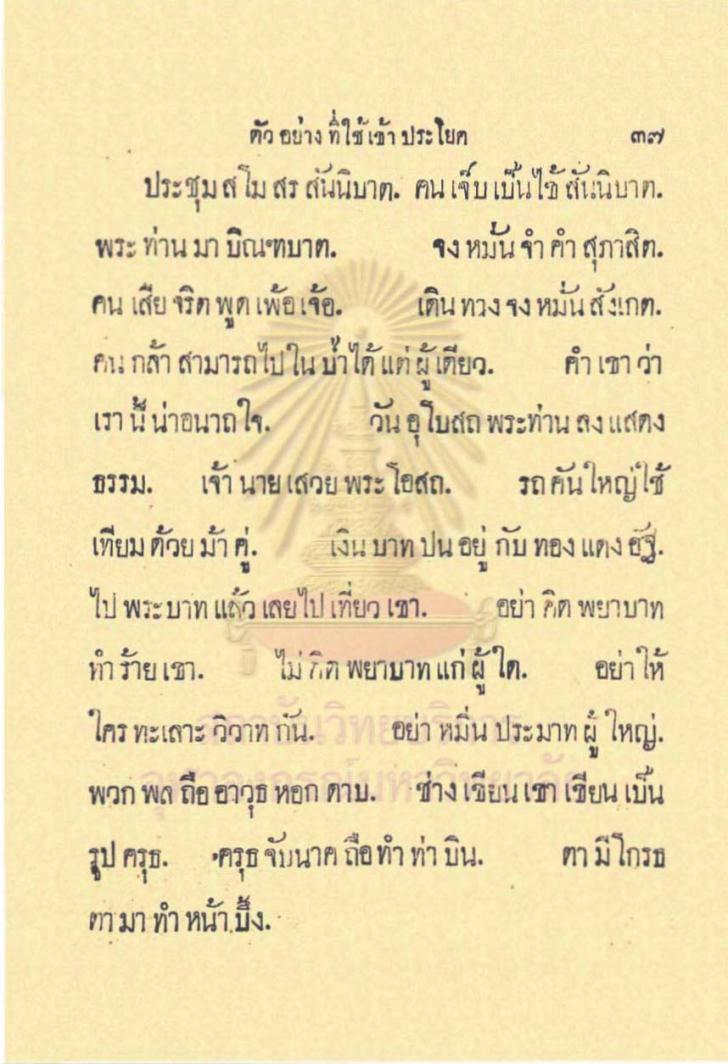 ตัว อย่าง ที่ใช้ เข้า ประโยค ๓๗
ประชุม สโม สร สันนิบาต. คน เจ็บ เป็นไข้ สันนิบาต.
พระ ท่าน มา บิณฑบาต. จง หมั้น จำ คำ สุภาสิต.
คน เสีย จริต พูด เพ้อ เจ้อ. เดิน ทวง จง หมั่น สังเกต.
คน กล้า สามารถ ไป ใน ป่า ได้ แต่ ผู้ เดียว. คำ เขา ว่า
เรา นี้ น่าอนาถ ใจ. วัน อุโบสถ พระท่าน ลง แสดง
ธรรม. เจ้า นาย เสวย พระ โอสถ. รถ คัน ใหญ่ ใช้
เทียม ด้วย ม้า คู่. เงิน บาท ปน อยู่ กับ ทอง แดง อัฐ.
ไป พระบาท แล้ว เลย ไป เที่ยว เขา. อย่า คิด พยาบาท
ทำ ร้าย เขา. ไม่ คิด พยาบาท แก่ ผู้ ใด. อย่า ให้
ใคร ทะเลาะ วิวาท กัน. อย่า หมิ่น ประมาท ผู้ ใหญ่.
พวก พล ถือ อาวุธ หอก ดาบ. ช่าง เขียน เขา เขียน เป็น
รูป ครุธ. ครุธ จับนาค ถือ ทำ ท่า บิน. ตา มี โกรธ
ตา มา ทำ หน้า บึ้ง.
สถาบันวิทยบริการ
จุฬาลงกรณ์มหาวิทยาลัย